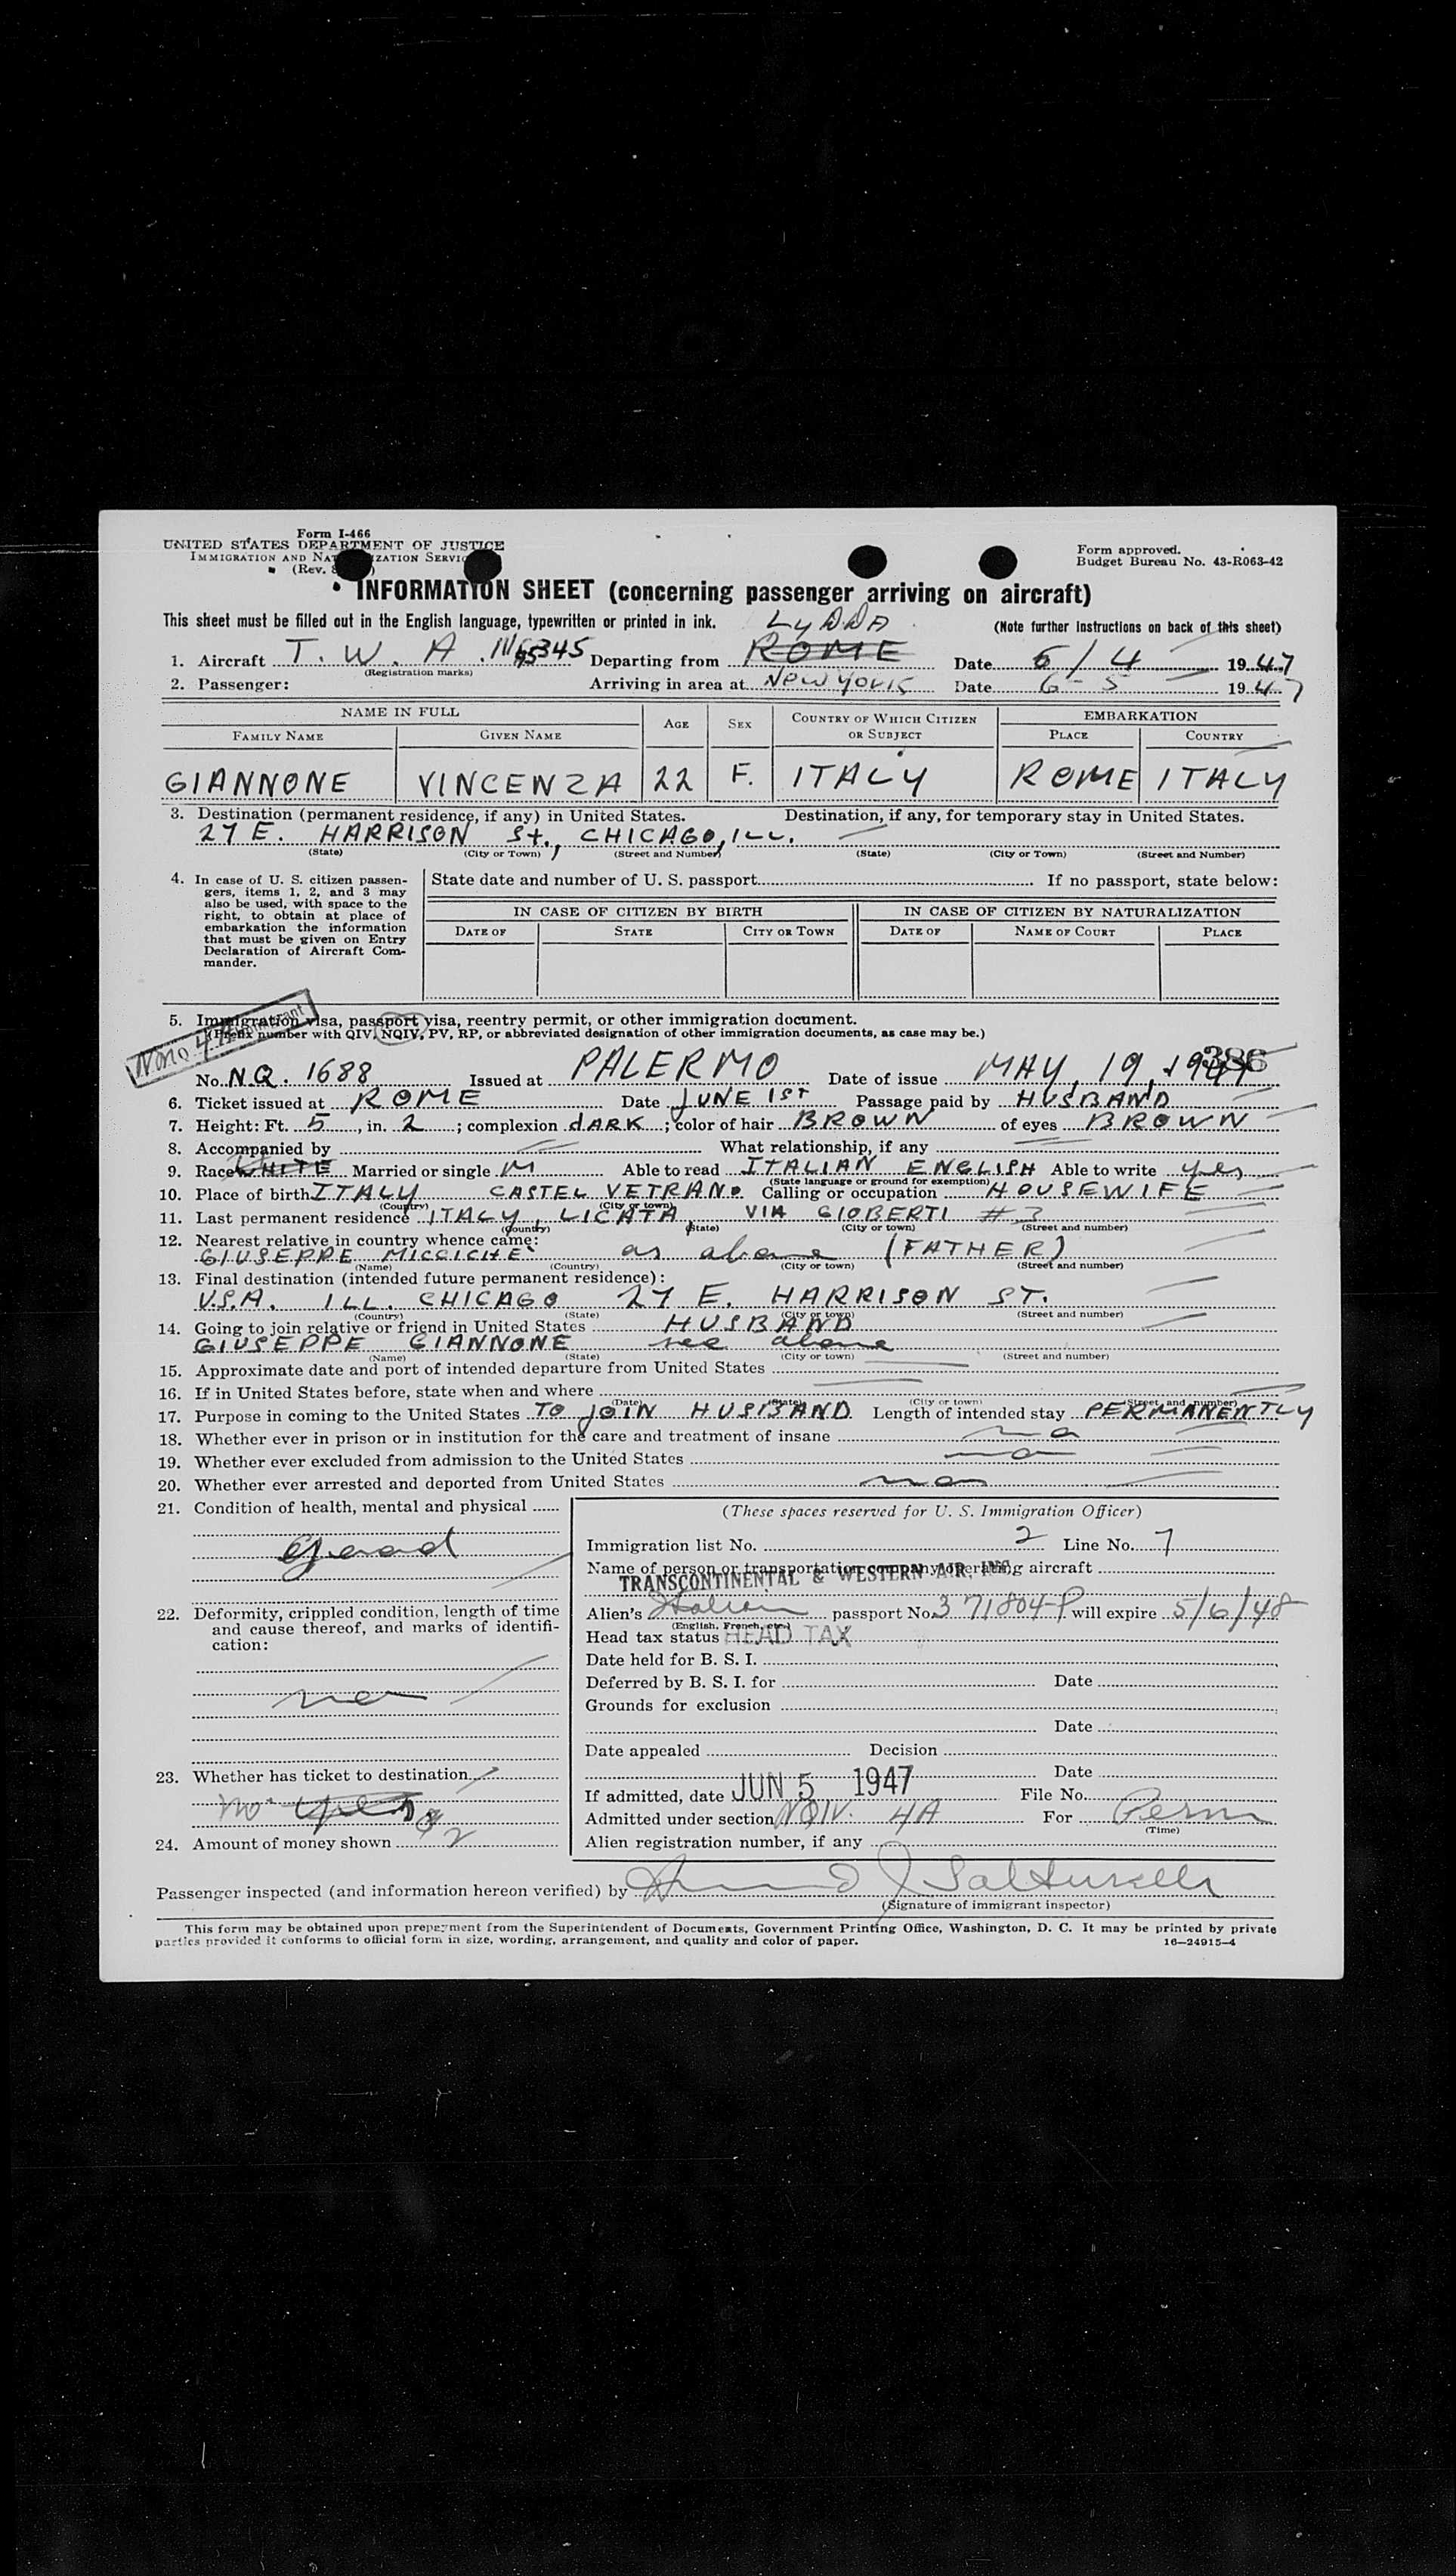 Form I-466
UNITED STATES DEPARTMENT OF JUSTICE
IMMIGRATION AND NATURALIZATION SERVICE
(Rev.
Form approved.
Budget Bureau No. 43-R063-42
INFORMATION SHEET (concerning passenger arriving on aircraft)
This sheet must be filled out in the English language, typewritten or printed in ink.
(Note further instructions on back of this sheet)
LYDDA
1. Aircraft T. W. A. 345 Departing from ROME Date 6/4 1947
(Registration marks)
2. Passenger: Arriving in area at New York Date 6-5 1947
NAME IN FULL AGE SEX COUNTRY OF WHICH CITIZEN OR SUBJECT EMBARKATION
FAMILY NAME GIVEN NAME PLACE COUNTRY
GIANNONE VINCENZA 22 F. ITALY ROME ITALY
3. Destination (permanent residence, if any) in United States. Destination, if any, for temporary stay in United States.
27 E. HARRISON St., CHICAGO, ILL.
(State) (City or Town) (Street and Number) (State) (City or Town) (Street and Number)
4. In case of U. S. citizen passengers, items 1, 2, and 3 may also be used, with space to the right, to obtain at place of embarkation the information that must be given on Entry Declaration of Aircraft Commander.
State date and number of U. S. passport If no passport, state below:
IN CASE OF CITIZEN BY BIRTH IN CASE OF CITIZEN BY NATURALIZATION
DATE OF STATE CITY OR TOWN DATE OF NAME OF COURT PLACE
5. Immigration visa, passport visa, reentry permit, or other immigration document.
(Prefix number with QIV, NQIV, PV, RP, or abbreviated designation of other immigration documents, as case may be.)
386
No. N.Q. 1688 Issued at PALERMO Date of issue MAY, 19, 1947
6. Ticket issued at ROME Date JUNE 1ST Passage paid by HUSBAND
7. Height: Ft. 5, in. 2; complexion DARK; color of hair BROWN of eyes BROWN
8. Accompanied by What relationship, if any
9. Race WHITE Married or single M Able to read ITALIAN ENGLISH Able to write yes
(State language or ground for exemption)
10. Place of birth ITALY CASTEL VETRANO Calling or occupation HOUSEWIFE
(Country) (City or town)
11. Last permanent residence ITALY, LICATA, VIA GIOBERTI # 3
(Country) (State) (City or town) (Street and number)
12. Nearest relative in country whence came:
GIUSEPPE MICCICHE' as above (FATHER)
(Name) (Country) (City or town) (Street and number)
13. Final destination (intended future permanent residence):
U.S.A. ILL. CHICAGO 27 E. HARRISON ST.
(Country) (State) (City or town) (Street and number)
14. Going to join relative or friend in United States HUSBAND
GIUSEPPE GIANNONE see above
(Name) (State) (City or town) (Street and number)
15. Approximate date and port of intended departure from United States
16. If in United States before, state when and where
(Date) (State) (City or town) (Street and number)
17. Purpose in coming to the United States TO JOIN HUSBAND Length of intended stay PERMANENTLY
18. Whether ever in prison or in institution for the care and treatment of insane no
19. Whether ever excluded from admission to the United States no
20. Whether ever arrested and deported from United States no
21. Condition of health, mental and physical
good
22. Deformity, crippled condition, length of time and cause thereof, and marks of identification:
no
23. Whether has ticket to destination
no
24. Amount of money shown
(These spaces reserved for U. S. Immigration Officer)
Immigration list No. 2 Line No. 7
Name of person or transportation company operating aircraft
TRANSCONTINENTAL & WESTERN AIR, INC.
Alien's Italian passport No. 371804-P will expire 5/6/48
(English, French, etc.)
Head tax status HEAD TAX
Date held for B. S. I.
Deferred by B. S. I. for Date
Grounds for exclusion
Date
Date appealed Decision
Date
If admitted, date JUN 5 1947 File No.
Admitted under section NQIV. 4A For Perm
(Time)
Alien registration number, if any
Passenger inspected (and information hereon verified) by
(Signature of immigrant inspector)
This form may be obtained upon prepayment from the Superintendent of Documents, Government Printing Office, Washington, D. C. It may be printed by private
parties provided it conforms to official form in size, wording, arrangement, and quality and color of paper. 16—24915-4